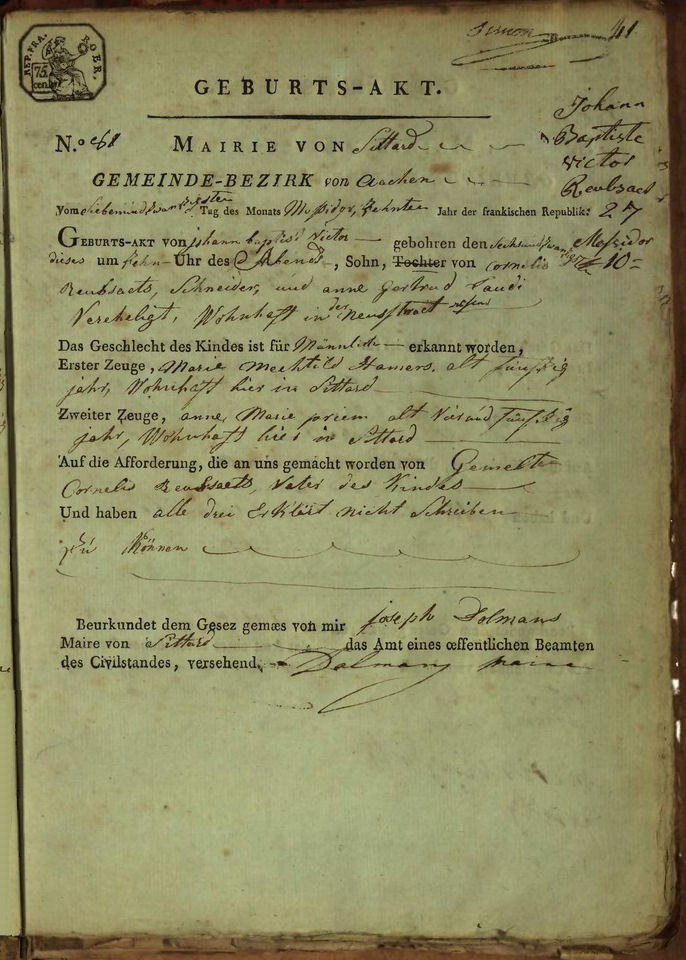 Simon 41
REP. FRA. ROER.
75 cent.
GEBURTS-AKT.
Johann
Baptiste
Victor
N.º 61 MAIRIE VON Sittard
GEMEINDE-BEZIRK von Aachen
27
Messidor
10
Vom siebenundzwanzigsten Tag des Monats Messidor, Zehnten Jahr der frankischen Republik:
GEBURTS-AKT von johann baptist Victor gebohren den Sechsundzwanzigsten
dieses um Zehn Uhr des Abends, Sohn, Tochter von Cornelis
Reubsaets, Schneider, und anne Gertrud
Vereheligt, Wohnhaft in der Neustraet
Das Geschlecht des Kindes ist für Männlich erkannt worden,
Erster Zeuge, Marie Mechtild Hamers, alt fünfzig
jahr, Wohnhaft hier in Sittard
Zweiter Zeuge, anne Marie priem alt Vierundfünfzig
jahr, Wohnhaft hier in Sittard
Auf die Afforderung, die an uns gemacht worden von Gemelte
Cornelis Reubsaets, Vater des Kindes
Und haben alle drei Erklärt nicht Schreiben
zu Können
Beurkundet dem Gesez gemæs von mir joseph Dolmans
Maire von Sittard das Amt eines œffentlichen Beamten
des Civilstandes, versehend. Dolmans maire